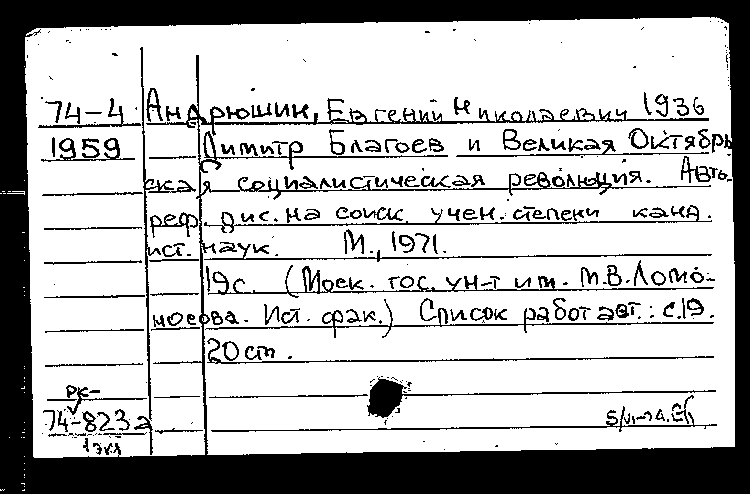 74-4 Андрюшин, Евгений Николаевич 1936
1959 Димитр Благоев и Великая Октябрь
ская социалистическая революция. Авто-
реф. дис. на соиск. учен. степени канд.
ист. наук. М., 1971.
19с. (Моск. гос. ун-т им. М.В. Ломо-
носова. Ист. фак.) Список работ авт.: с.19.
20 cm.
РК-
74-823а 5/VI-74.
1экз